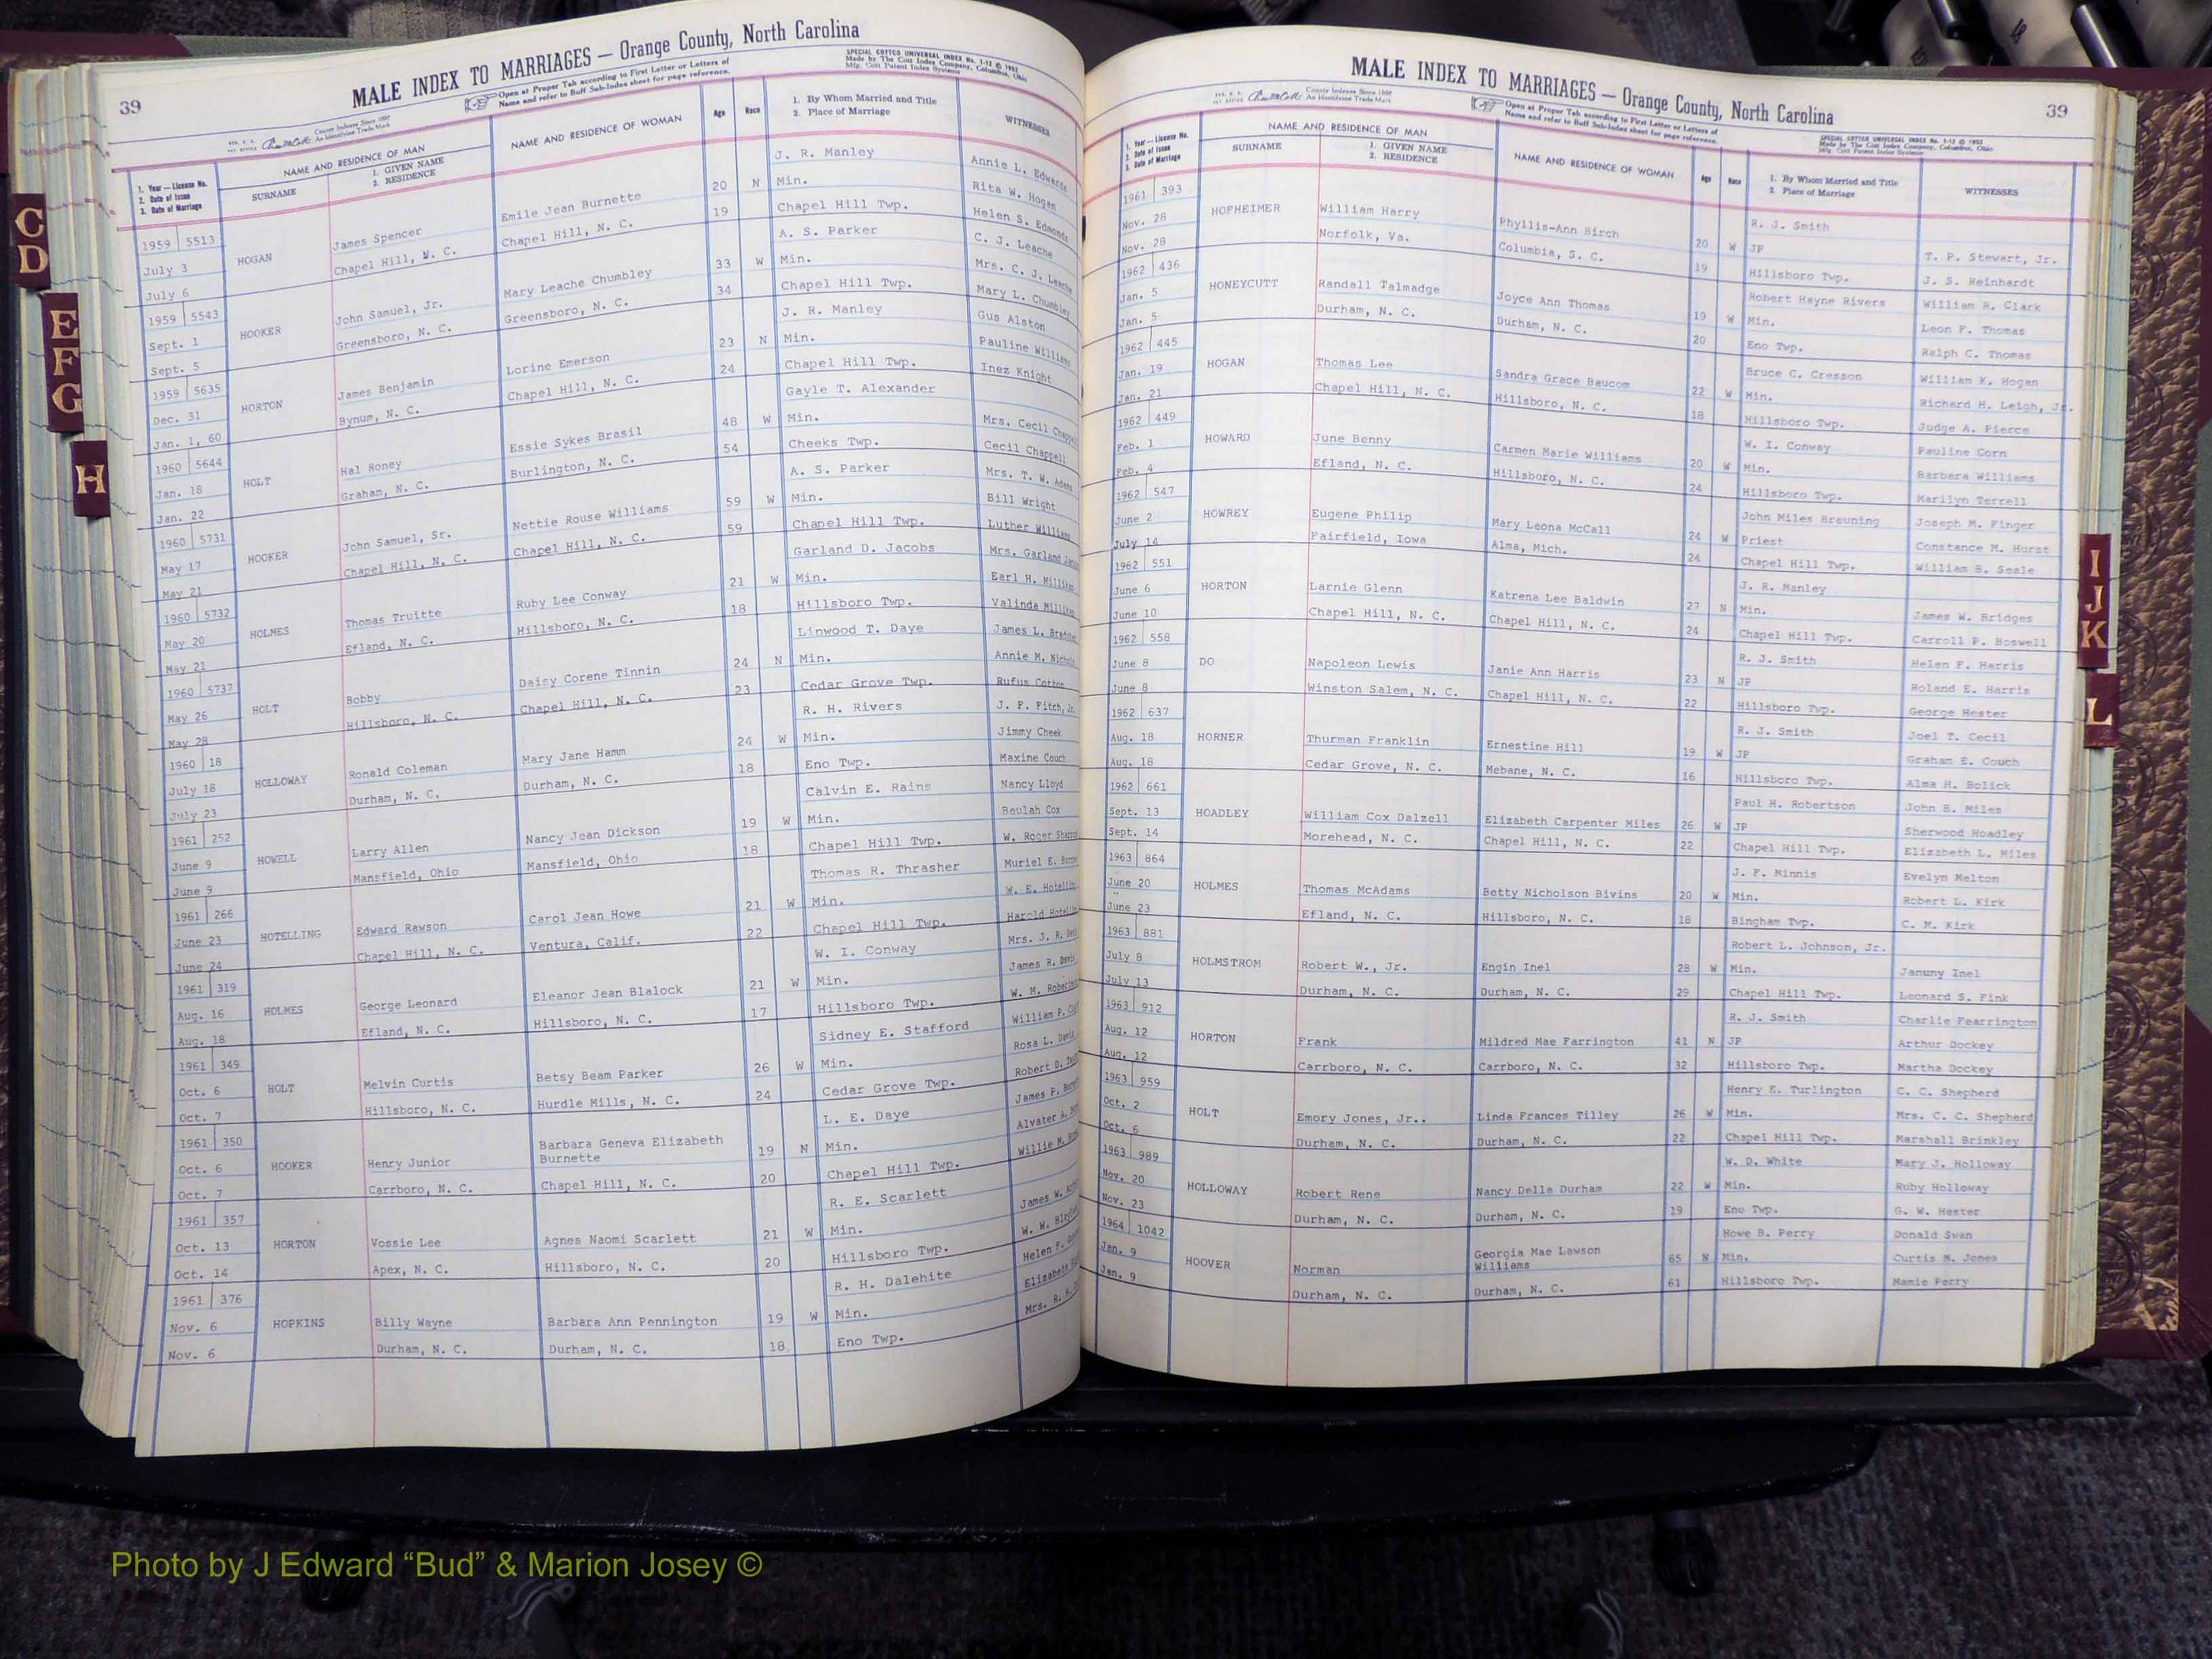 MALE INDEX TO MARRIAGES — Orange County, North Carolina
39
Open at Proper Tab according to First Letter or Letters of
Name and refer to Buff Sub-Index sheet for page reference.
SPECIAL COTTCO UNIVERSAL INDEX No. 1-12 © 1952
Made by The Cott Index Company, Columbus, Ohio
Mfg. Cott Patent Index Systems
County Indexes Since 1888
An Identifying Trade Mark
1. Year — License No.
2. Date of Issue
3. Date of Marriage
NAME AND RESIDENCE OF MAN
SURNAME
1. GIVEN NAME
2. RESIDENCE
NAME AND RESIDENCE OF WOMAN
Age
Race
1. By Whom Married and Title
2. Place of Marriage
WITNESSES
1959 5513 J. R. Manley Annie L. Edwards
July 3 HOGAN James Spencer Emile Jean Burnette 20 N Min. Rita W. Hogan
July 6 Chapel Hill, N. C. Chapel Hill, N. C. 19 Chapel Hill Twp. Helen S. Edmonds
1959 5543 A. S. Parker C. J. Leache
Sept. 1 HOOKER John Samuel, Jr. Mary Leache Chumbley 33 W Min. Mrs. C. J. Leache
Sept. 5 Greensboro, N. C. Greensboro, N. C. 34 Chapel Hill Twp. Mary L. Chumbley
1959 5635 J. R. Manley Gus Alston
Dec. 31 HORTON James Benjamin Lorine Emerson 23 N Min. Pauline Williams
Jan. 1, 60 Bynum, N. C. Chapel Hill, N. C. 24 Chapel Hill Twp. Inez Knight
1960 5644 Gayle T. Alexander
Jan. 18 HOLT Hal Roney Essie Sykes Brasil 48 W Min. Mrs. Cecil Chappell
Jan. 22 Graham, N. C. Burlington, N. C. 54 Cheeks Twp. Cecil Chappell
1960 5731 A. S. Parker Mrs. T. W. Adams
May 17 HOOKER John Samuel, Sr. Nettie Rouse Williams 59 W Min. Bill Wright
May 21 Chapel Hill, N. C. Chapel Hill, N. C. 59 Chapel Hill Twp. Luther Williams
1960 5732 Garland D. Jacobs Mrs. Garland
May 20 HOLMES Thomas Truitte Ruby Lee Conway 21 W Min. Earl H.
May 21 Efland, N. C. Hillsboro, N. C. 18 Hillsboro Twp. Valinda
1960 5737 Linwood T. Daye James L.
May 26 HOLT Bobby Daisy Corene Tinnin 24 N Min. Annie M.
May 28 Hillsboro, N. C. Chapel Hill, N. C. 23 Cedar Grove Twp. Rufus Cotton
1960 18 R. H. Rivers J. F. Fitch, Jr.
July 18 HOLLOWAY Ronald Coleman Mary Jane Hamm 24 W Min. Jimmy Cheek
July 23 Durham, N. C. Durham, N. C. 18 Eno Twp. Maxine Couch
1961 252 Calvin E. Rains Nancy Lloyd
June 9 HOWELL Larry Allen Nancy Jean Dickson 19 W Min. Beulah Cox
June 9 Mansfield, Ohio Mansfield, Ohio 18 Chapel Hill Twp. W. Roger
1961 266 Thomas R. Thrasher Muriel E.
June 23 HOTELLING Edward Rawson Carol Jean Howe 21 W Min. W. E.
June 24 Chapel Hill, N. C. Ventura, Calif. 22 Chapel Hill Twp. Harold
1961 319 W. I. Conway Mrs. J. R.
Aug. 16 HOLMES George Leonard Eleanor Jean Blalock 21 W Min. James R.
Aug. 18 Efland, N. C. Hillsboro, N. C. 17 Hillsboro Twp. W. M.
1961 349 Sidney E. Stafford William P.
Oct. 6 HOLT Melvin Curtis Betsy Beam Parker 26 W Min. Rosa L.
Oct. 7 Hillsboro, N. C. Hurdle Mills, N. C. 24 Cedar Grove Twp. Robert D.
1961 350 L. E. Daye James P.
Oct. 6 HOOKER Henry Junior Barbara Geneva Elizabeth Burnette 19 N Min. Alvater A.
Oct. 7 Carrboro, N. C. Chapel Hill, N. C. 20 Chapel Hill Twp. Willie M.
1961 357 R. E. Scarlett
Oct. 13 HORTON Vossie Lee Agnes Naomi Scarlett 21 W Min. James W.
Oct. 14 Apex, N. C. Hillsboro, N. C. 20 Hillsboro Twp. W. W.
1961 376 R. H. Dalehite Helen F.
Nov. 6 HOPKINS Billy Wayne Barbara Ann Pennington 19 W Min. Elizabeth
Nov. 6 Durham, N. C. Durham, N. C. 18 Eno Twp. Mrs. R. H.
MALE INDEX TO MARRIAGES — Orange County, North Carolina
39
County Indexes Since 1888
An Identifying Trade Mark
Open at Proper Tab according to First Letter or Letters of
Name and refer to Buff Sub-Index sheet for page reference.
SPECIAL COTTCO UNIVERSAL INDEX No. 1-12 © 1952
Made by The Cott Index Company, Columbus, Ohio
Mfg. Cott Patent Index Systems
1. Year — License No.
2. Date of Issue
3. Date of Marriage
NAME AND RESIDENCE OF MAN
SURNAME
1. GIVEN NAME
2. RESIDENCE
NAME AND RESIDENCE OF WOMAN
Age
Race
1. By Whom Married and Title
2. Place of Marriage
WITNESSES
1961 393 R. J. Smith
Nov. 28 HOFHEIMER William Harry Phyllis-Ann Birch 20 W JP T. P. Stewart, Jr.
Nov. 28 Norfolk, Va. Columbia, S. C. 19 Hillsboro Twp. J. S. Reinhardt
1962 436 Robert Hayne Rivers William R. Clark
Jan. 5 HONEYCUTT Randall Talmadge Joyce Ann Thomas 19 W Min. Leon F. Thomas
Jan. 5 Durham, N. C. Durham, N. C. 20 Eno Twp. Ralph C. Thomas
1962 445 Bruce C. Cresson William K. Hogan
Jan. 19 HOGAN Thomas Lee Sandra Grace Baucom 22 W Min. Richard H. Leigh, Jr.
Jan. 21 Chapel Hill, N. C. Hillsboro, N. C. 18 Hillsboro Twp. Judge A. Pierce
1962 449 W. I. Conway Pauline Corn
Feb. 1 HOWARD June Benny Carmen Marie Williams 20 W Min. Barbara Williams
Feb. 4 Efland, N. C. Hillsboro, N. C. 24 Hillsboro Twp. Marilyn Terrell
1962 547 John Miles Breuning Joseph M. Finger
June 2 HOWREY Eugene Philip Mary Leona McCall 24 W Priest Constance M. Hurst
July 14 Fairfield, Iowa Alma, Mich. 24 Chapel Hill Twp. William B. Seale
1962 551 J. R. Manley
June 6 HORTON Larnie Glenn Katrena Lee Baldwin 27 N Min. James W. Bridges
June 10 Chapel Hill, N. C. Chapel Hill, N. C. 24 Chapel Hill Twp. Carroll P. Boswell
1962 558 R. J. Smith Helen F. Harris
June 8 DO Napoleon Lewis Janie Ann Harris 23 N JP Roland E. Harris
June 8 Winston Salem, N. C. Chapel Hill, N. C. 22 Hillsboro Twp. George Hester
1962 637 R. J. Smith Joel T. Cecil
Aug. 18 HORNER Thurman Franklin Ernestine Hill 19 W JP Graham E. Couch
Aug. 18 Cedar Grove, N. C. Mebane, N. C. 16 Hillsboro Twp. Alma H. Bolick
1962 661 Paul H. Robertson John B. Miles
Sept. 13 HOADLEY William Cox Dalzell Elizabeth Carpenter Miles 26 W JP Sherwood Hoadley
Sept. 14 Morehead, N. C. Chapel Hill, N. C. 22 Chapel Hill Twp. Elizabeth L. Miles
1963 864 J. F. Minnis Evelyn Melton
June 20 HOLMES Thomas McAdams Betty Nicholson Bivins 20 W Min. Robert L. Kirk
June 23 Efland, N. C. Hillsboro, N. C. 18 Bingham Twp. C. M. Kirk
1963 881 Robert L. Johnson, Jr.
July 8 HOLMSTROM Robert W., Jr. Engin Inel 28 W Min. Januny Inel
July 13 Durham, N. C. Durham, N. C. 29 Chapel Hill Twp. Leonard S. Fink
1963 912 R. J. Smith Charlie Fearrington
Aug. 12 HORTON Frank Mildred Mae Farrington 41 N JP Arthur Dockey
Aug. 12 Carrboro, N. C. Carrboro, N. C. 32 Hillsboro Twp. Martha Dockey
1963 959 Henry E. Turlington C. C. Shepherd
Oct. 2 HOLT Emory Jones, Jr.. Linda Frances Tilley 26 W Min. Mrs. C. C. Shepherd
Oct. 6 Durham, N. C. Durham, N. C. 22 Chapel Hill Twp. Marshall Brinkley
1963 989 W. D. White Mary J. Holloway
Nov. 20 HOLLOWAY Robert Rene Nancy Della Durham 22 W Min. Ruby Holloway
Nov. 23 Durham, N. C. Durham, N. C. 19 Eno Twp. G. W. Hester
1964 1042 Howe B. Perry Donald Swan
Jan. 9 HOOVER Norman Georgia Mae Lawson Williams 65 N Min. Curtis N. Jones
Jan. 9 Durham, N. C. Durham, N. C. 61 Hillsboro Twp. Mamie Perry
C
D
E
F
G
H
I
J
K
L
Photo by J Edward “Bud” & Marion Josey ©